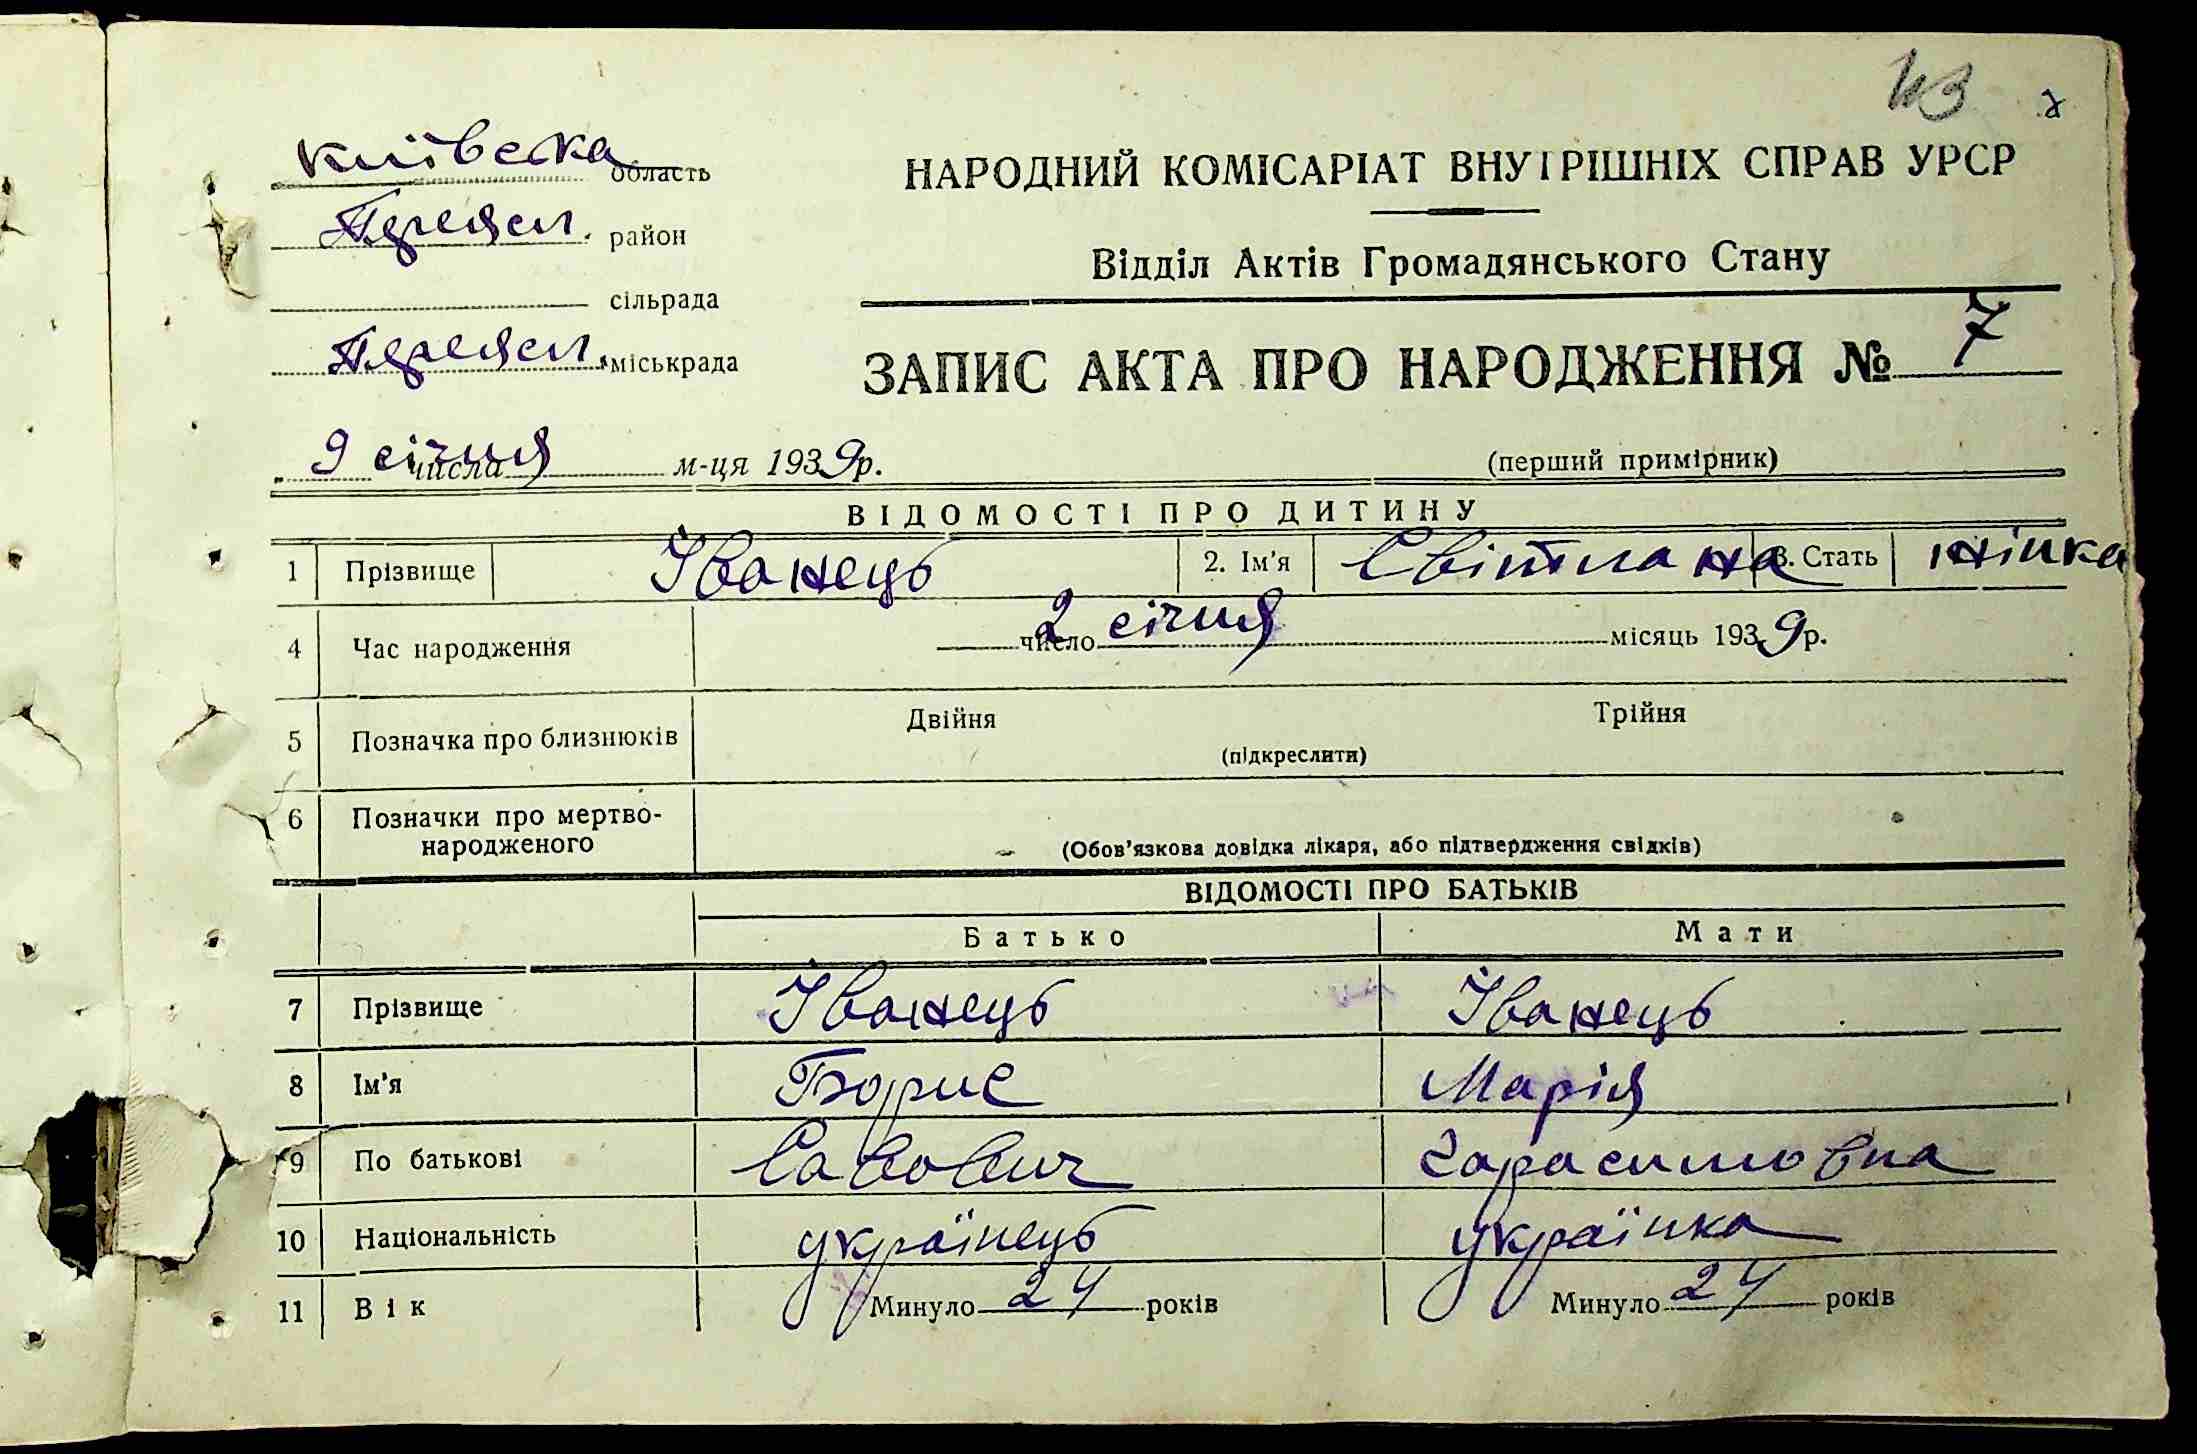 43
Київська область
НАРОДНИЙ КОМІСАРІАТ ВНУТРІШНІХ СПРАВ УРСР
Переясл. район
Відділ Актів Громадянського Стану
сільрада
Переясл. міськрада
ЗАПИС АКТА ПРО НАРОДЖЕННЯ № 7
9 числа січня м-ця 1939р.
(перший примірник)
ВІДОМОСТІ ПРО ДИТИНУ
1 Прізвище Іванець 2. Ім'я Світлана 3. Стать жінка
4 Час народження 2 число січня місяць 1939р.
5 Позначка про близнюків Двійня Трійня
(підкреслити)
6 Позначки про мертво-
народженого
(Обов'язкова довідка лікаря, або підтвердження свідків)
ВІДОМОСТІ ПРО БАТЬКІВ
Батько Мати
7 Прізвище Іванець Іванець
8 Ім'я Борис Марія
9 По батькові Савович Гарасимовна
10 Національність українець українка
11 Вік Минуло 24 років Минуло 24 років